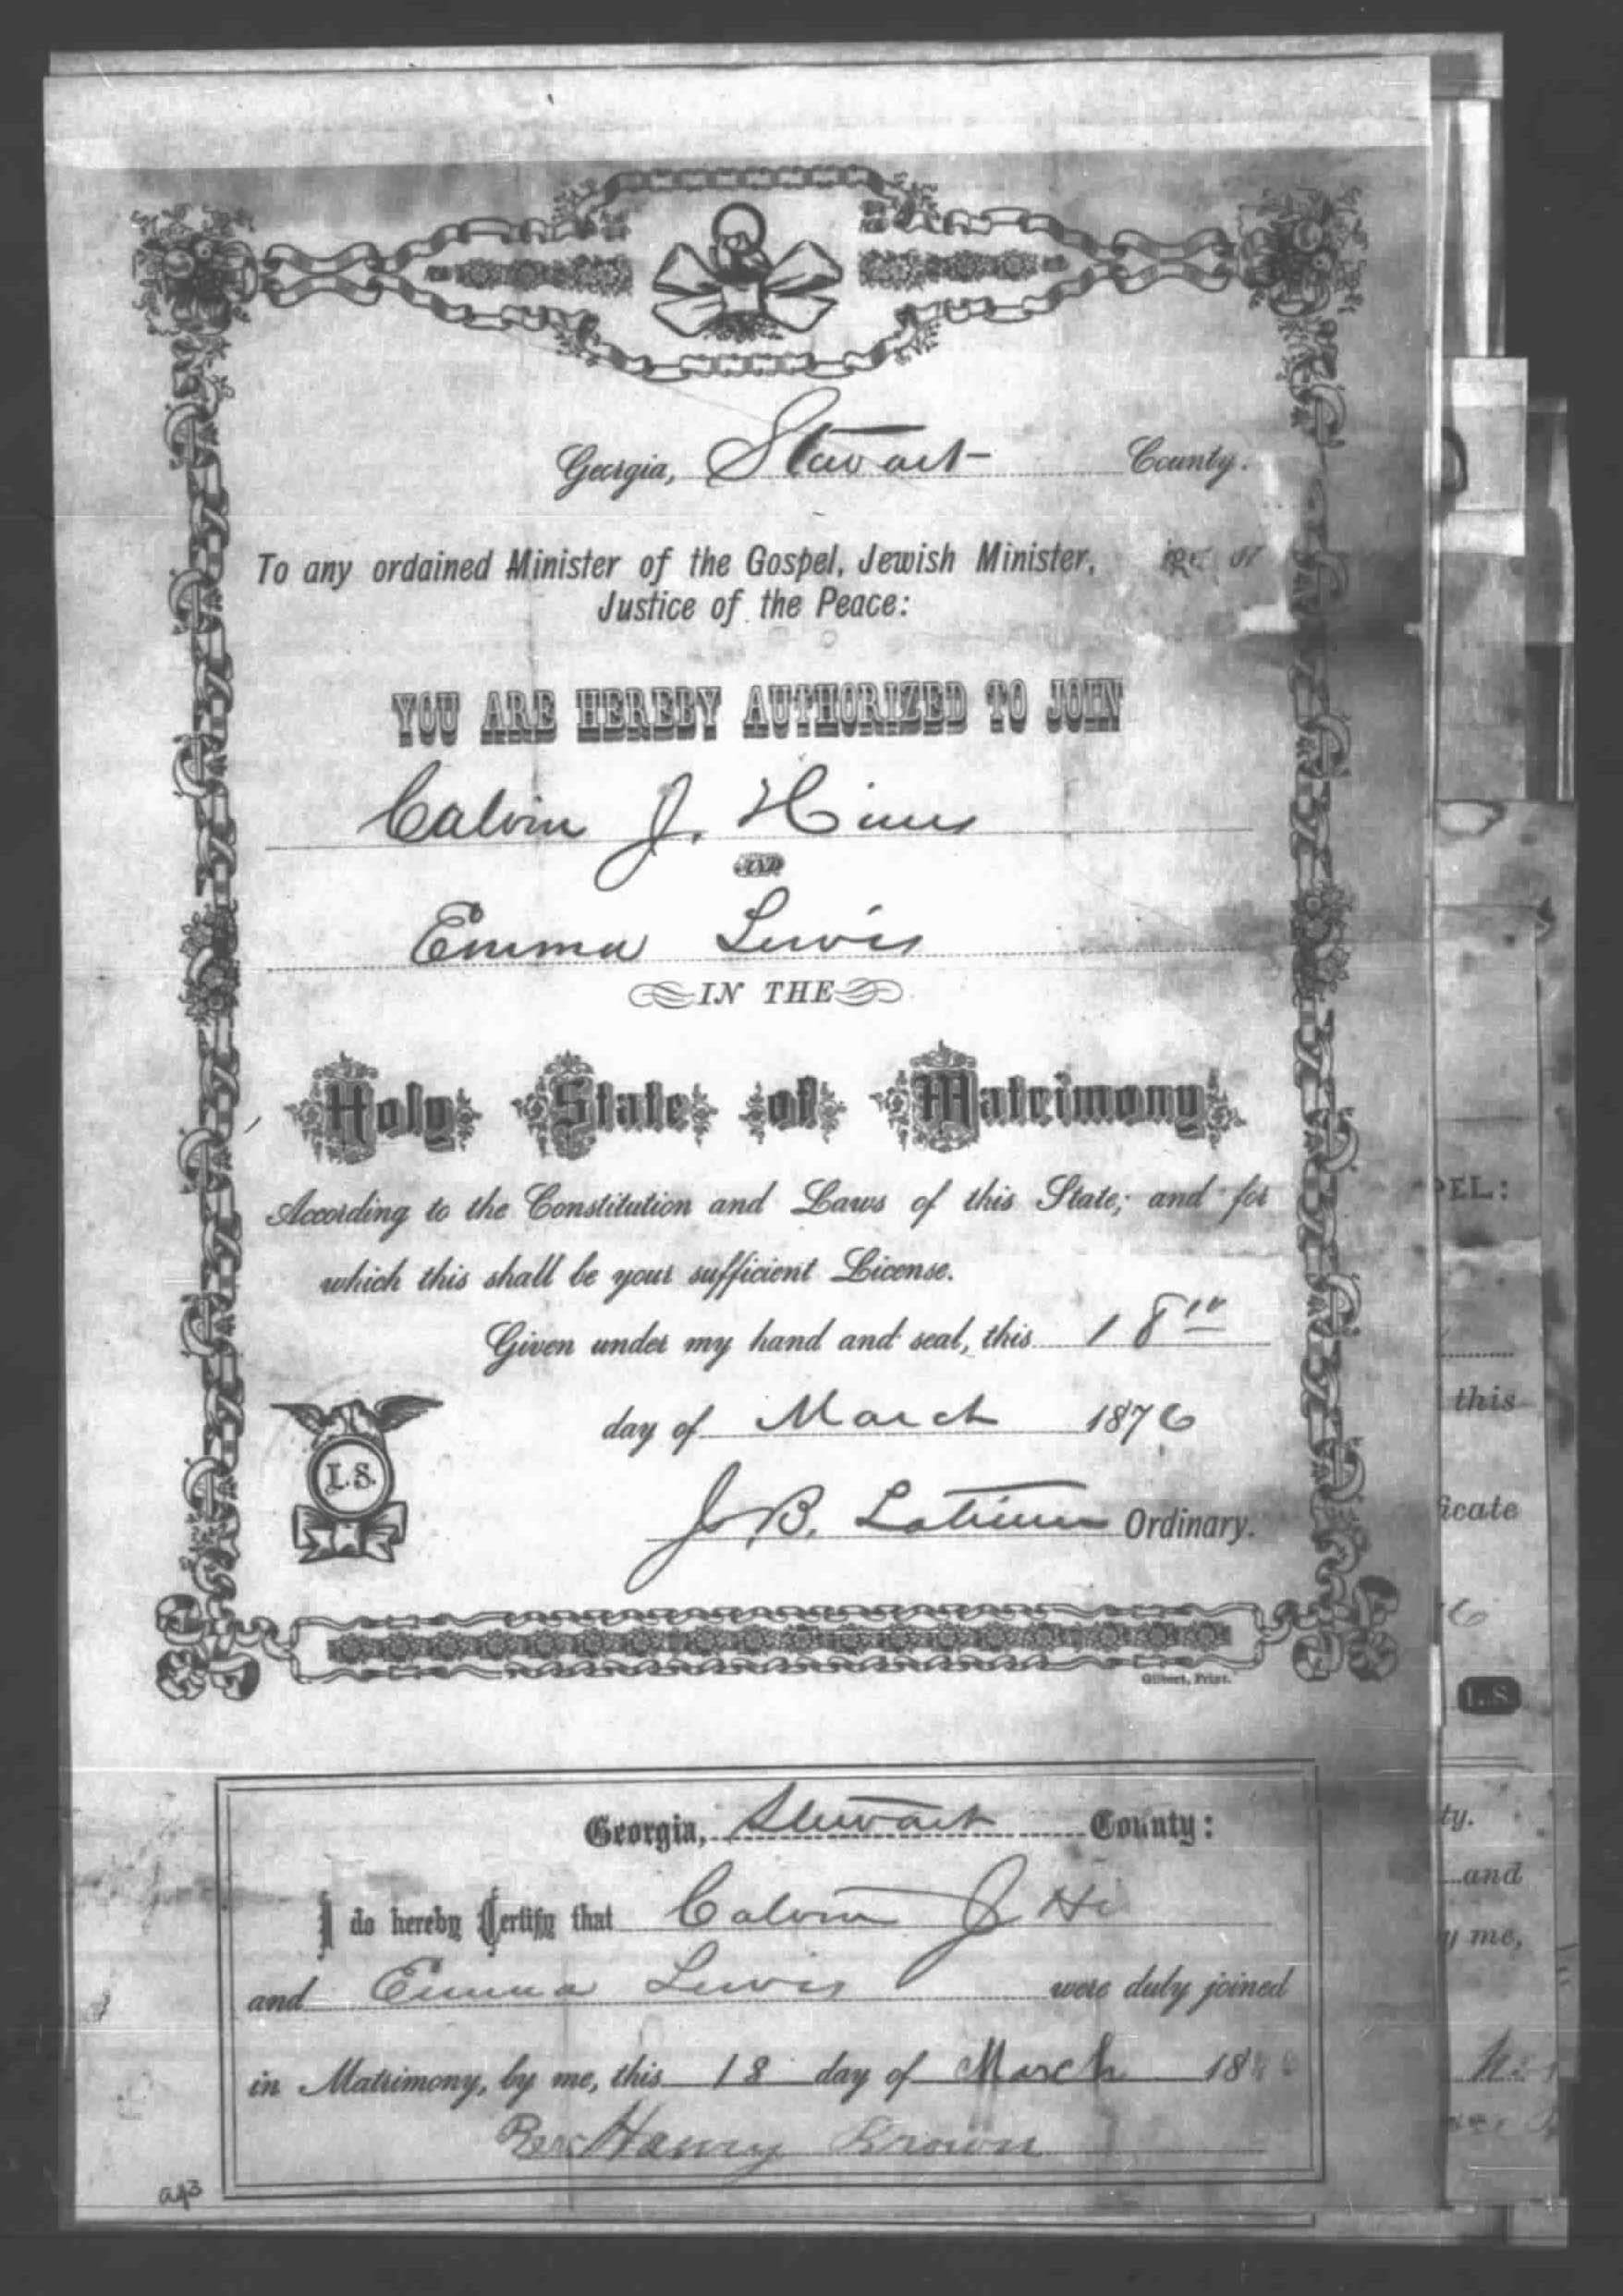 Georgia, Stewart County.
To any ordained Minister of the Gospel, Jewish Minister,
Justice of the Peace:
YOU ARE HEREBY AUTHORIZED TO JOIN
Calvin J. Hines
AND
Emma Lewis
IN THE
Holy State of Matrimony
According to the Constitution and Laws of this State; and for
which this shall be your sufficient License.
Given under my hand and seal, this 18th
day of March 1876
L.S.
J. B. Latimer Ordinary.
Gilbert, Print.
Georgia, Stewart County:
I do hereby Certify that Calvin J Hi
and Emma Lewis were duly joined
in Matrimony, by me, this 18 day of March 18
Rev Henry Brown
PEL:
this
icate
6
L.S.
ty.
and
y me,